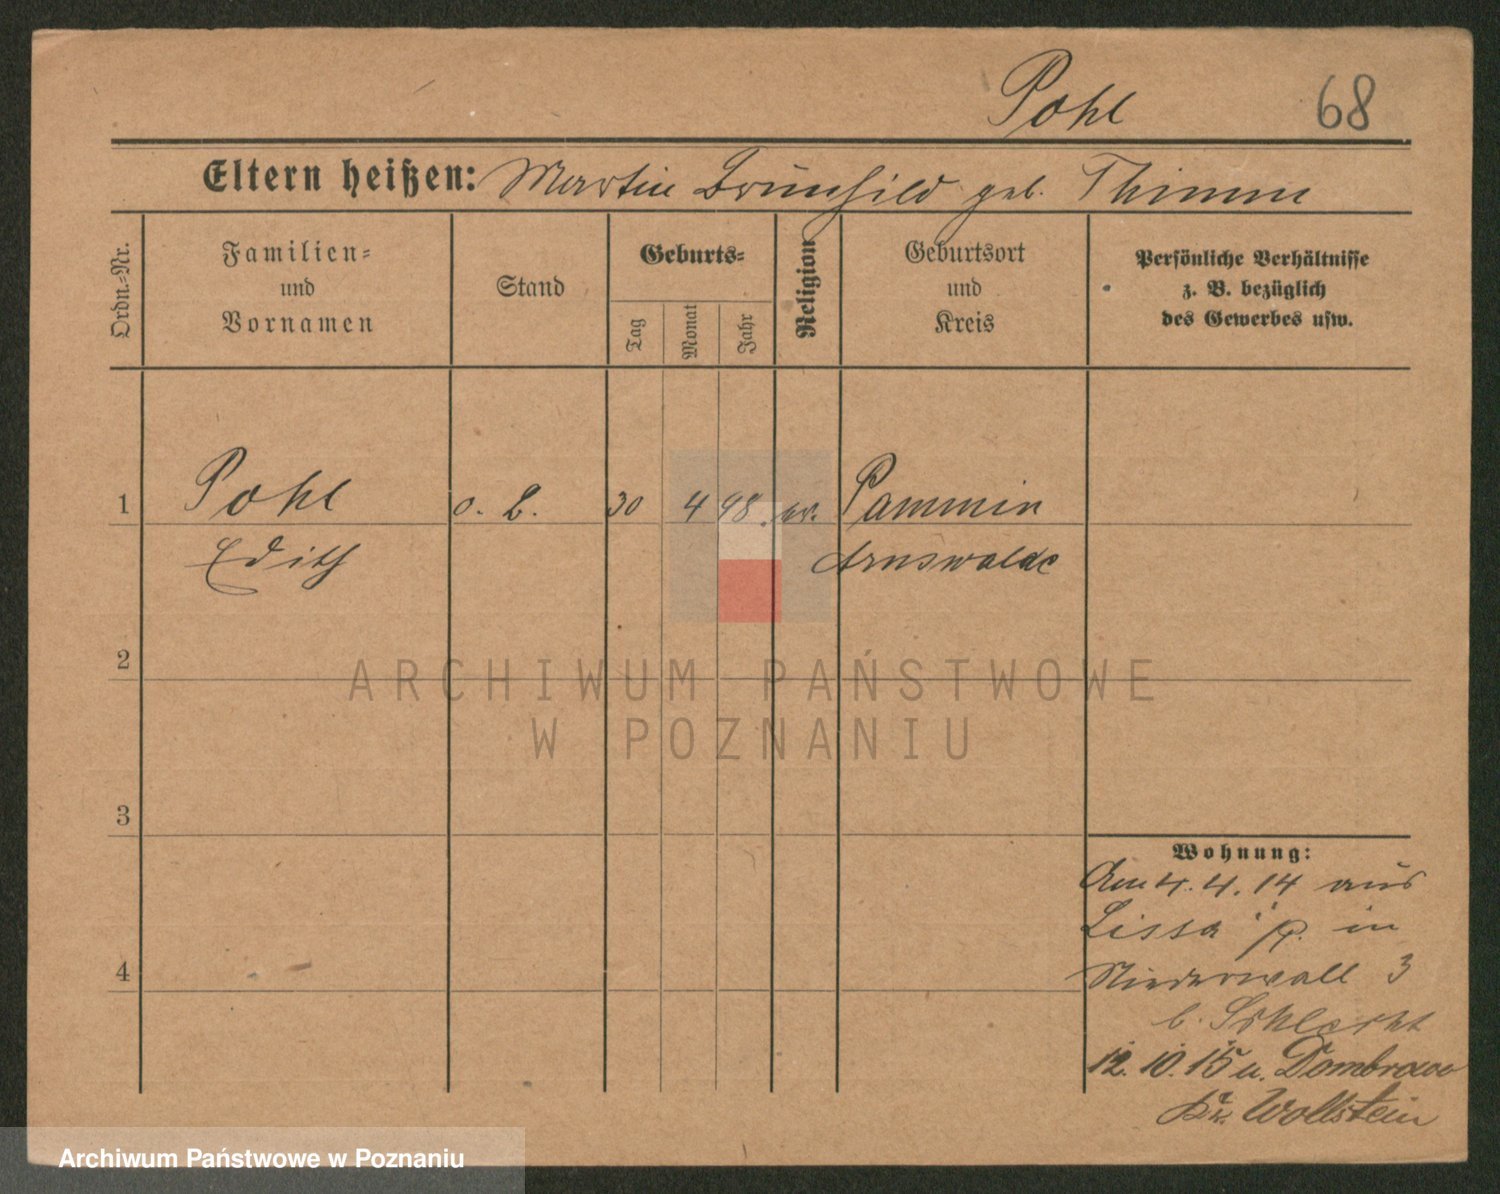 Pohl 68
Eltern heißen: Martin Brünhild geb. Thimm
Ordn.=Nr.
Familien=
und
Vornamen
Stand
Geburts=
Tag
Monat
Jahr
Religion
Geburtsort
und
Kreis
Persönliche Verhältnisse
z. B. bezüglich
des Gewerbes usw.
1 Pohl o. B. 30 4 98. ev. Pammin
Edith Arnswalde
2
ARCHIWUM PAŃSTWOWE
W POZNANIU
3
Wohnung:
Am 4. 4. 14 aus
Lissa i/p. in
Niederwall 3
4
b. Schlecht
12. 10. 15 n. Dombrowo
Kr. Wollstein
Archiwum Państwowe w Poznaniu